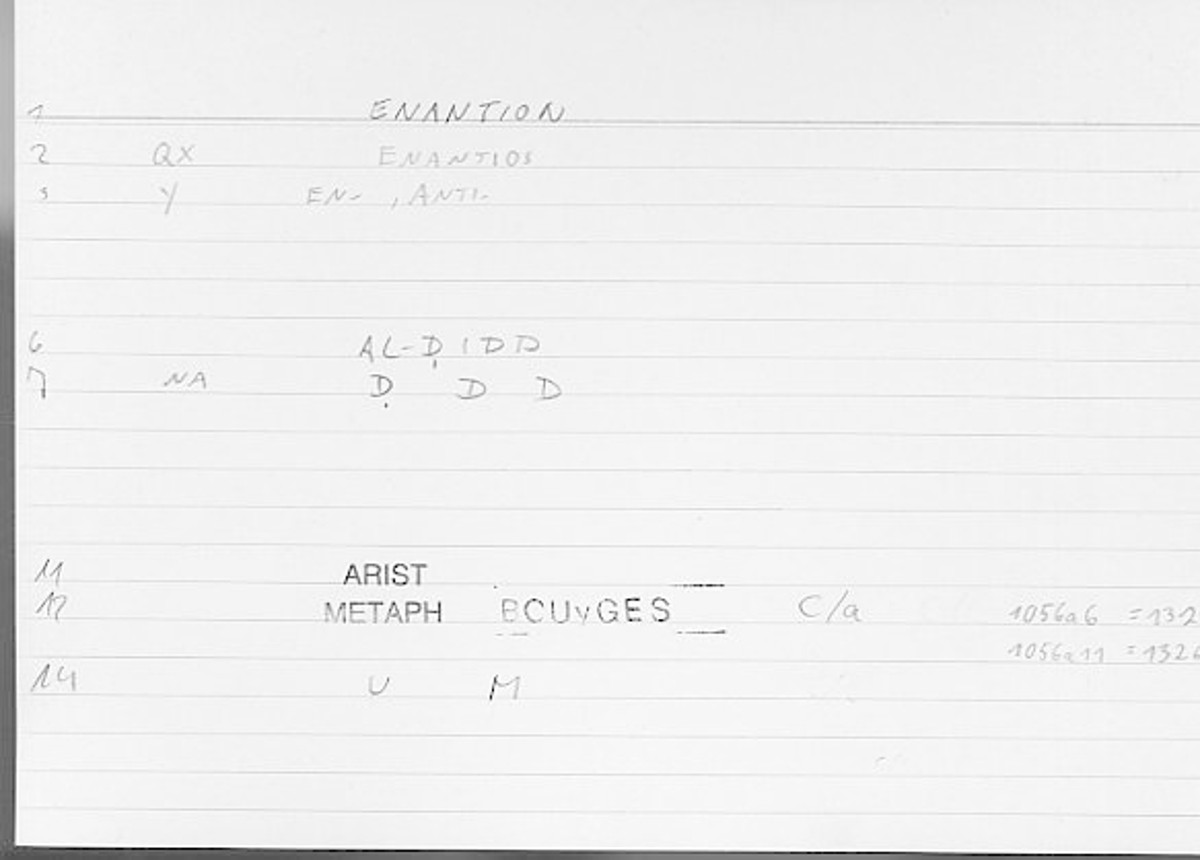 1 ENANTION
2 QX ENANTIOS
3 Y EN- , ANTI-
6 AL-ḌIDD
7 NA Ḍ D D
11 ARIST
12 METAPH BOUYGES C/a 1056a6 =132
1056a11 =1326
14 U M